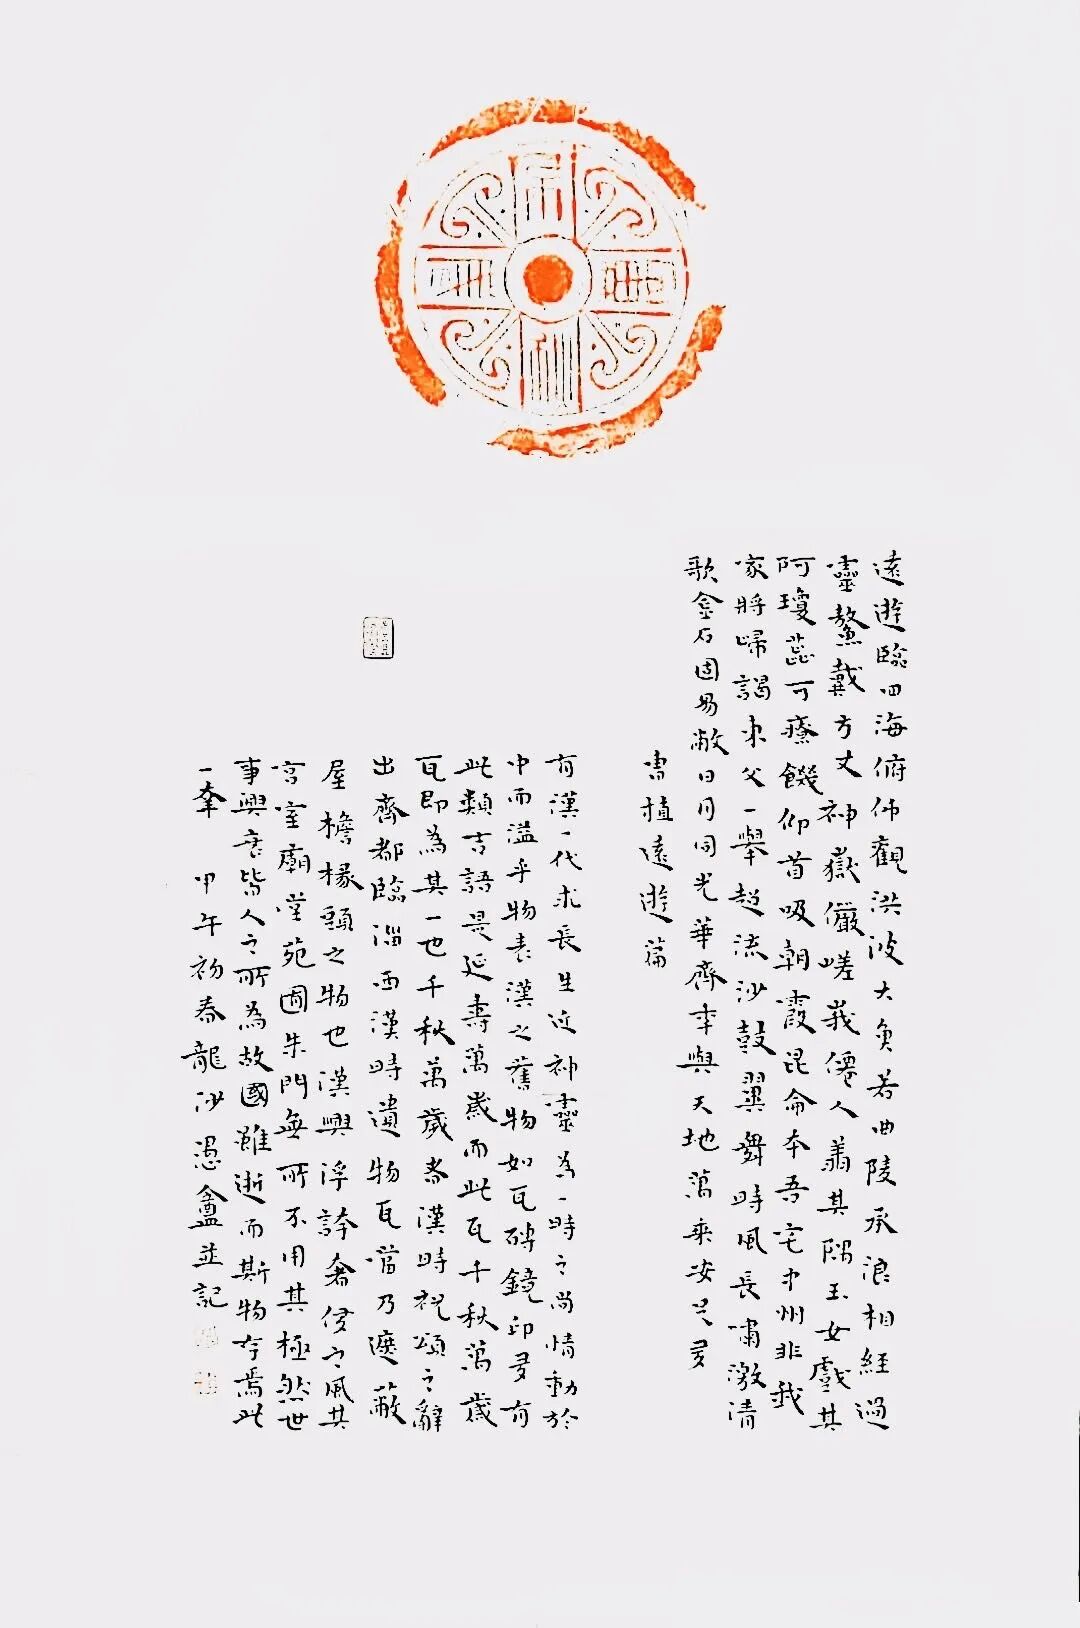 遠遊臨四海俯仰觀洪波大魚若曲陵承浪相經過
靈鰲戴方丈神嶽儼嵯峨僊人翥其隅玉女戲其
阿瓊蕊可療饑仰首吸朝霞昆侖本吾宅中州非我
家將歸謁東父一舉超流沙鼓翼舞時風長嘯激清
歌金石固易敝日月同光華齊年與天地萬乘安足多
曹植遠遊篇
有漢一代求長生近神靈為一時之尚情動於
中而溢乎物表漢之舊物如瓦磚鏡印多有
此類吉語是延壽萬歲而此瓦千秋萬歲
瓦即為其一也千秋萬歲者漢時祝頌之辭
出齊都臨淄西漢時遺物瓦當乃遮蔽
屋檐椽頭之物也漢興浮誇奢侈之風其
宮室廟堂苑囿朱門無所不用其極然世
事興衰皆人之所為故國雖逝而斯物存焉此
一 甲午初春龍沙憑盦並記